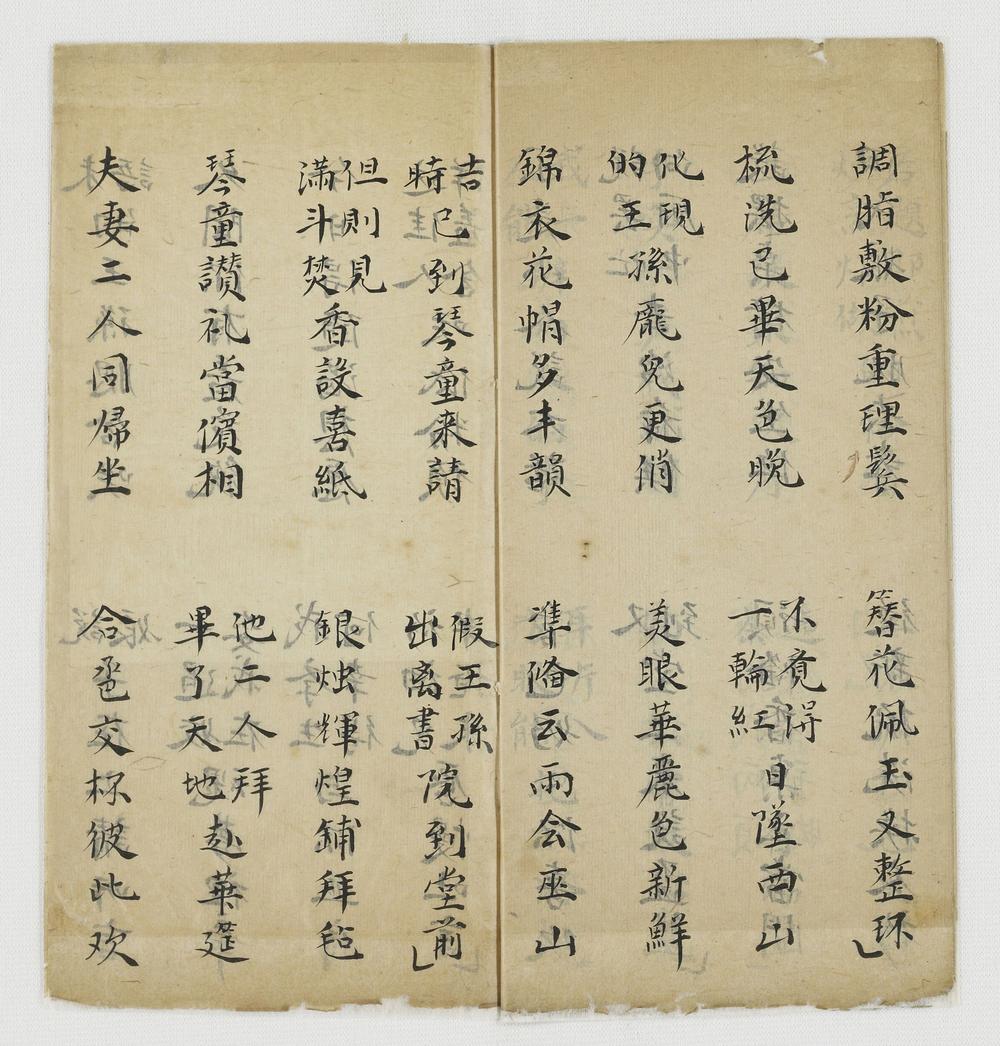 調脂敷粉重理鬓
簪花佩玉又整环
梳洗已畢天色晚
不覓浔一輪紅日墜西山
化現的王孫龐兒更俏
美眼華麗色新鮮
錦衣花帽多丰韻
準俻云雨会巫山
吉時已到琴童来請
假王孫出离書院到堂前
但則見滿斗焚香設喜紙
銀烛輝煌鋪拜毡
琴童讃礼當儐相
他二人拜畢了天地赴華莚
夫妻二人同歸坐
合卺交杯彼此欢